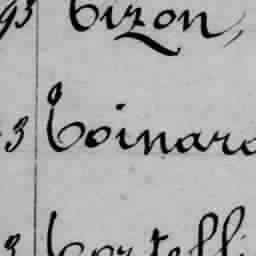 93 Cizon,
3 Coinard
3 Cortelli